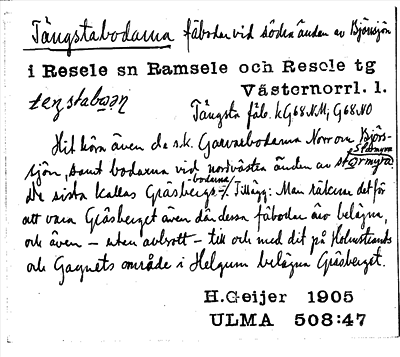 Tängstabodarna fäbodar vid södra ändan av Björsjön
i Resele sn Ramsele och Resele tg
Västernorrl. l.
Tängsta fäb. k G68 NM; G68 NO
Hit höra även de s.k. Garvarbodarna Norr om Björs-
sjön, samt bodarna vid nordvästra ändan av St Ormyra
Stormyra
de sista kallas Gråsbergs-bodarna. Tillägg: Man räknar det för
att vara Gråsberget även där dessa fäbodar äro belägna,
och även – utan avbrott – till och med dit på Holmstrands
och Gagnets område i Helgum belägna Gråsberget.
H.Geijer 1905
ULMA 508:47